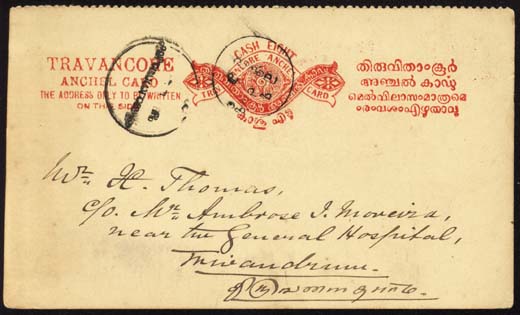 TRAVANCORE
ANCHEL CARD
THE ADDRESS ONLY TO BE WRITTEN
ON THIS SIDE
CASH EIGHT
ANCHEL
CARD
തിരുവിതാംകൂർ
അഞ്ചൽ കാൎഡ
മെൽവിലാസംമാത്രമെ
ൟവശംഎഴുതാവൂ
Mr. H. Thomas,
c/o. Mr. Ambrose J. Moreira,
near the General Hospital,
Trivandrum.